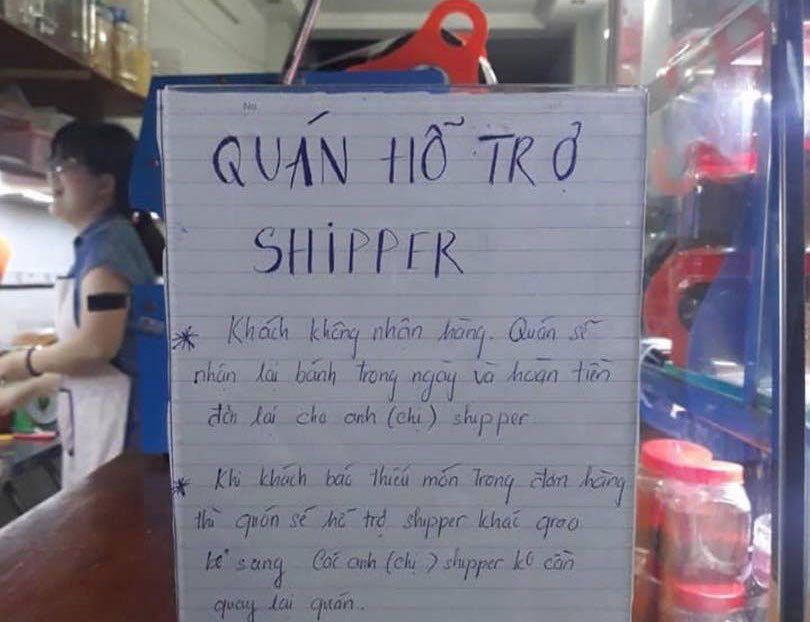 QUÁN HỖ TRỢ
SHIPPER
* Khách không nhận hàng. Quán sẽ
nhận lại bánh trong ngày và hoàn tiền
đơn lại cho anh (chị) shipper
* Khi khách báo thiếu món trong đơn hàng
thì quán sẽ hỗ trợ shipper khác giao
bổ sung. Các anh (chị) shipper ko cần
quay lại quán.